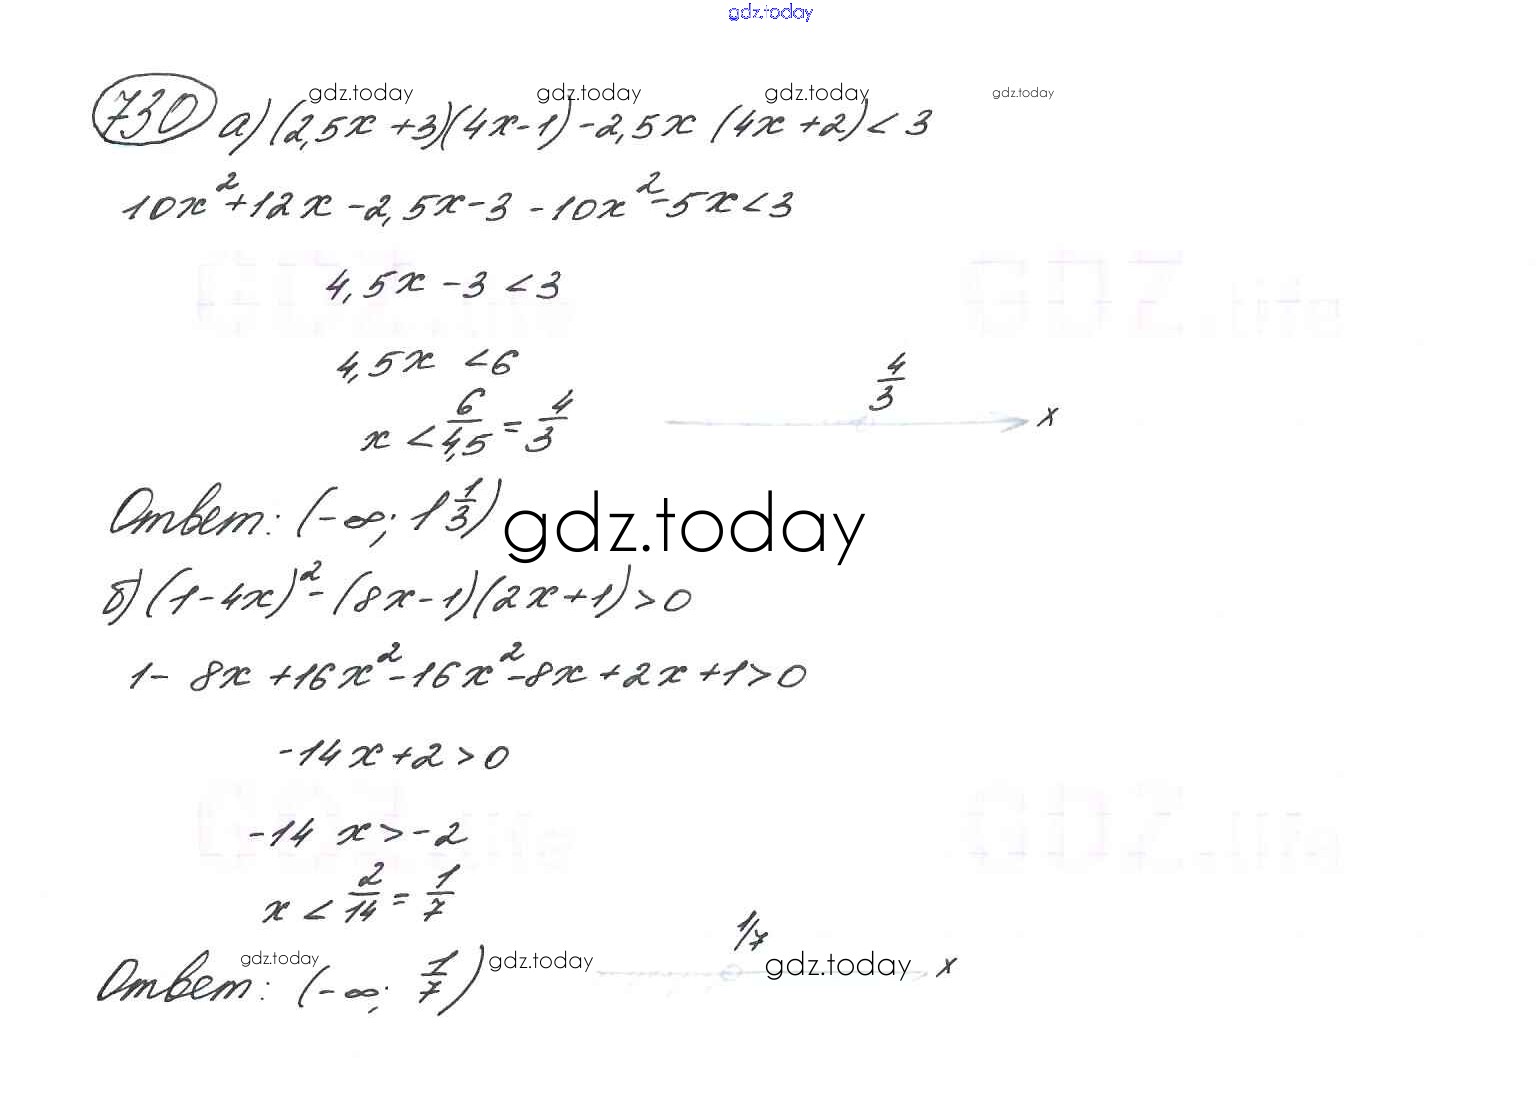 gdz.today
gdz.today gdz.today gdz.today gdz.today
730 а) (2,5x + 3)(4x - 1) - 2,5x (4x + 2) < 3
10x² + 12x - 2,5x - 3 - 10x² - 5x < 3
GDZ.life GDZ.life
4,5x - 3 < 3
4,5x < 6
x < 6/4,5 = 4/3
4/3 x
Ответ: (-∞; 1 1/3)
gdz.today
б) (1 - 4x)² - (8x - 1)(2x + 1) > 0
1 - 8x + 16x² - 16x² - 8x + 2x + 1 > 0
-14x + 2 > 0
GDZ.life GDZ.life
-14 x > -2
x < 2/14 = 1/7
1/7 x
Ответ: (-∞; 1/7)
gdz.today gdz.today gdz.today